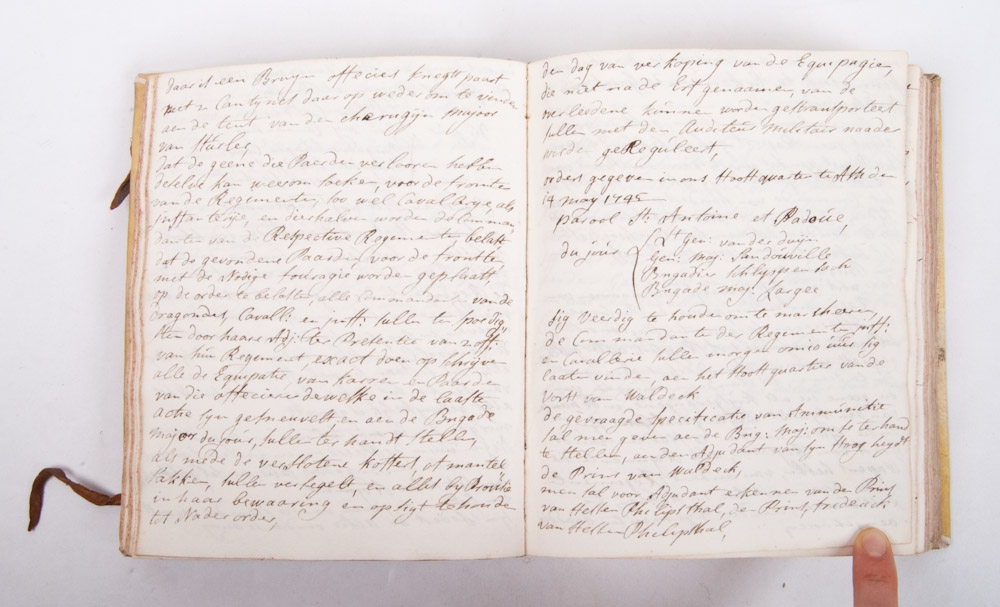 daar is een Bruyn officiers kneghts paart
met 2 Cantynes daar op wederom te vinde
aen de tent van den cherugijn Majoor
van Harler
dat de geene die Paerden verlooren hebben
deselve kan weerom soeken, voor de fronte
van de Regimenten, soo wel Cavallerye, als
infanterije, en dieshalven worden de Comman
danten van de Respective Regementen belast
dat de gevondene Paarden, voor de frontte
met de Nodige fouragie worden geplaatst,
op de order te belasten alle Commandanten van de
Dragonders, Cavall: en inff: sullen ten spoedig
sten door haare Adj: ter Presentie van 2 off:
van hun Regement, exact doen op schrijve
alle de Equipatie van karren en Paarden
van die officieren dewelke in de laatste
actie syn gesneuvelt, en aen de Brigade
Major du jour, sullen ter handt stellen,
als mede de verslotene koffers, of mantel
sakken, sullen versegelt, en alles by Provisie
in haar bewaaring en op sigt te houden
tot Nader order,
den dag van verkoping van de Equipagien,
die niet na de Erfgenaamen, van de
overledene kunnen worden getransporteert
sullen met den Auditeur Militair naader
worde geReguleert,
orders gegeven in ons Hooft quartier te Ath den
14 may 1745
parool St: Antoine et Padoüe,
du jour Lt Gen: van der duijn
Gen: Maj: Sandouville
Brigadier Schlippenbach
Brigade Maj: Largee
sig veerdig te houden om te marcheeren,
de Commandanten der Regementen inff:
en Cavallerie sullen morgen om 10 uur sig
laaten vinden, aen het Hooft quartier van de
Vorst van Waldeck
de gevraagde specificatie van Ammunitie
sal men geven aen de Brig: Maj: om se ter hand
te stellen, aen den Adjudant van syn Hoog heydt
de Prins van Waldeck,
men sal voor Adjudant erkennen van de Prins
van Hessen Philipsthal, den Prins, frederick
van Hessen Philipsthal,